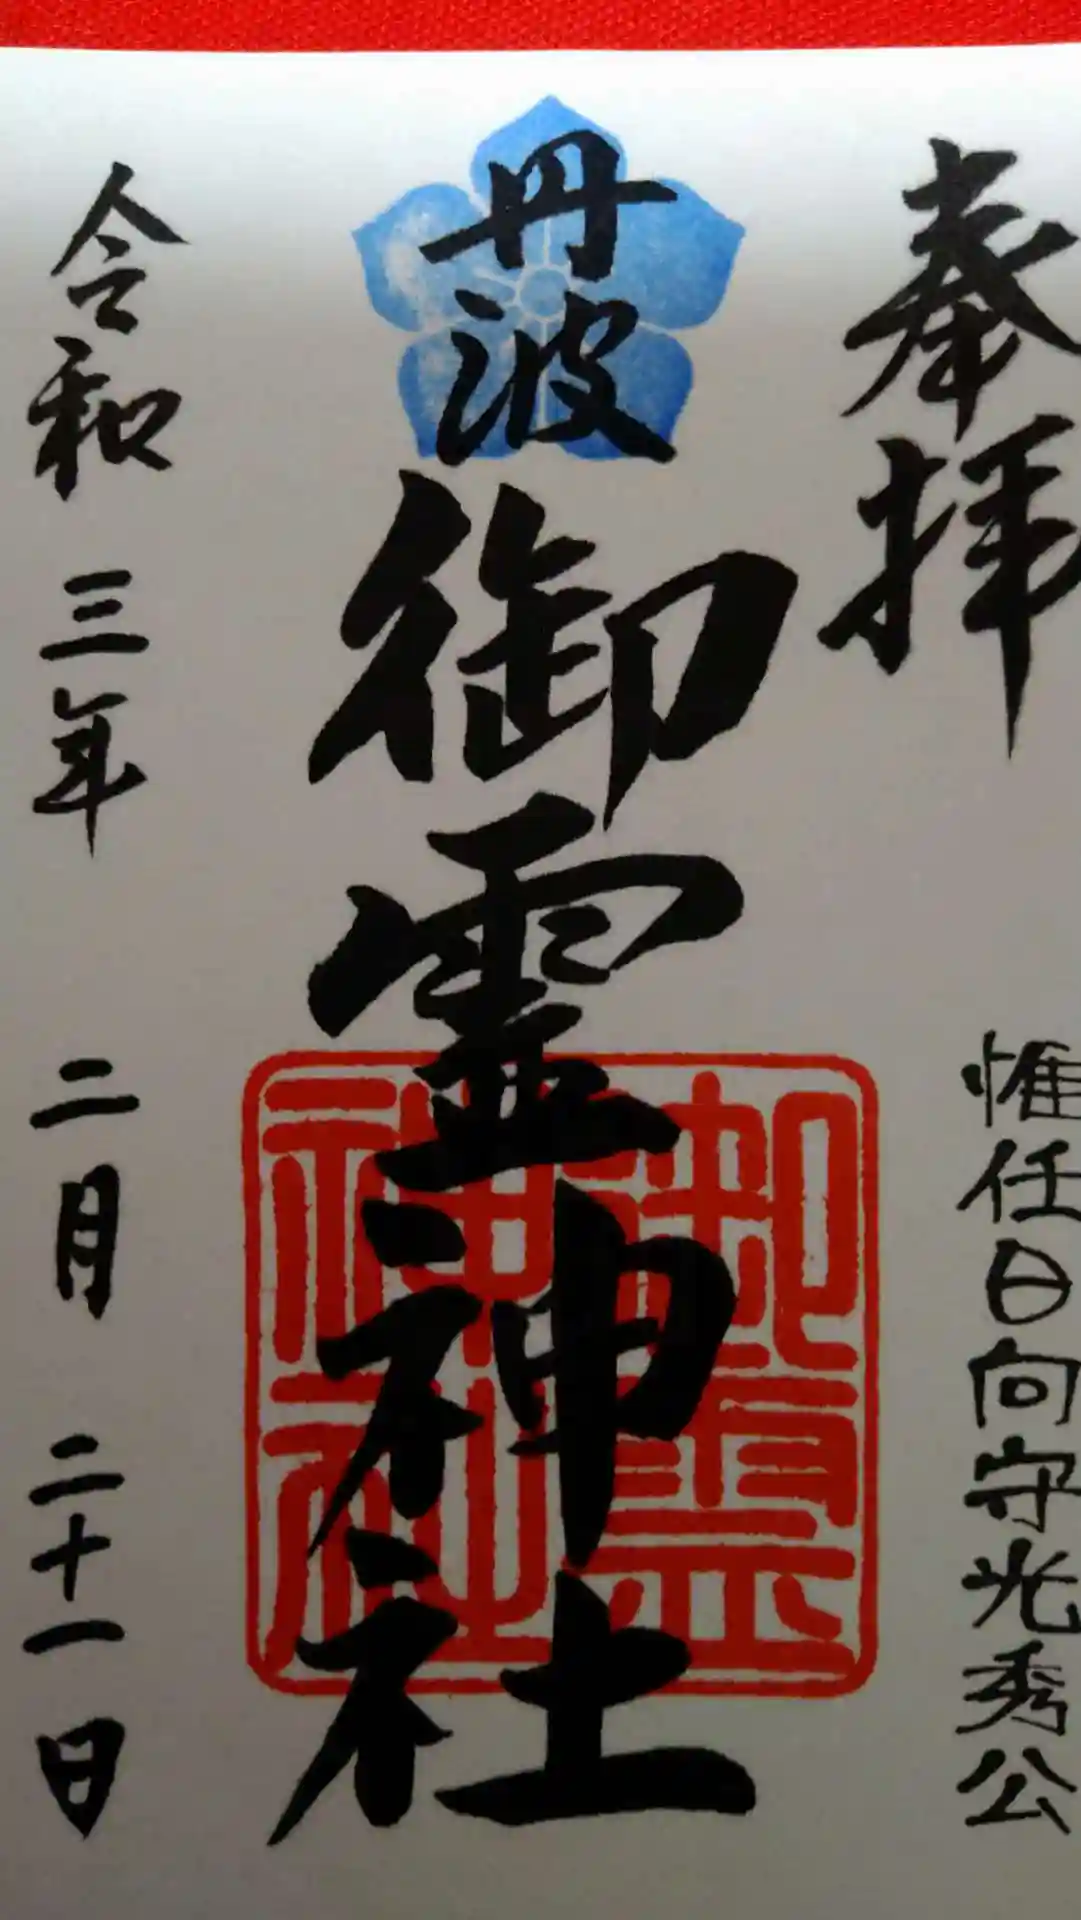 奉拝
惟任日向守光秀公
丹波
御霊神社
御霊神社
令和三年二月二十一日